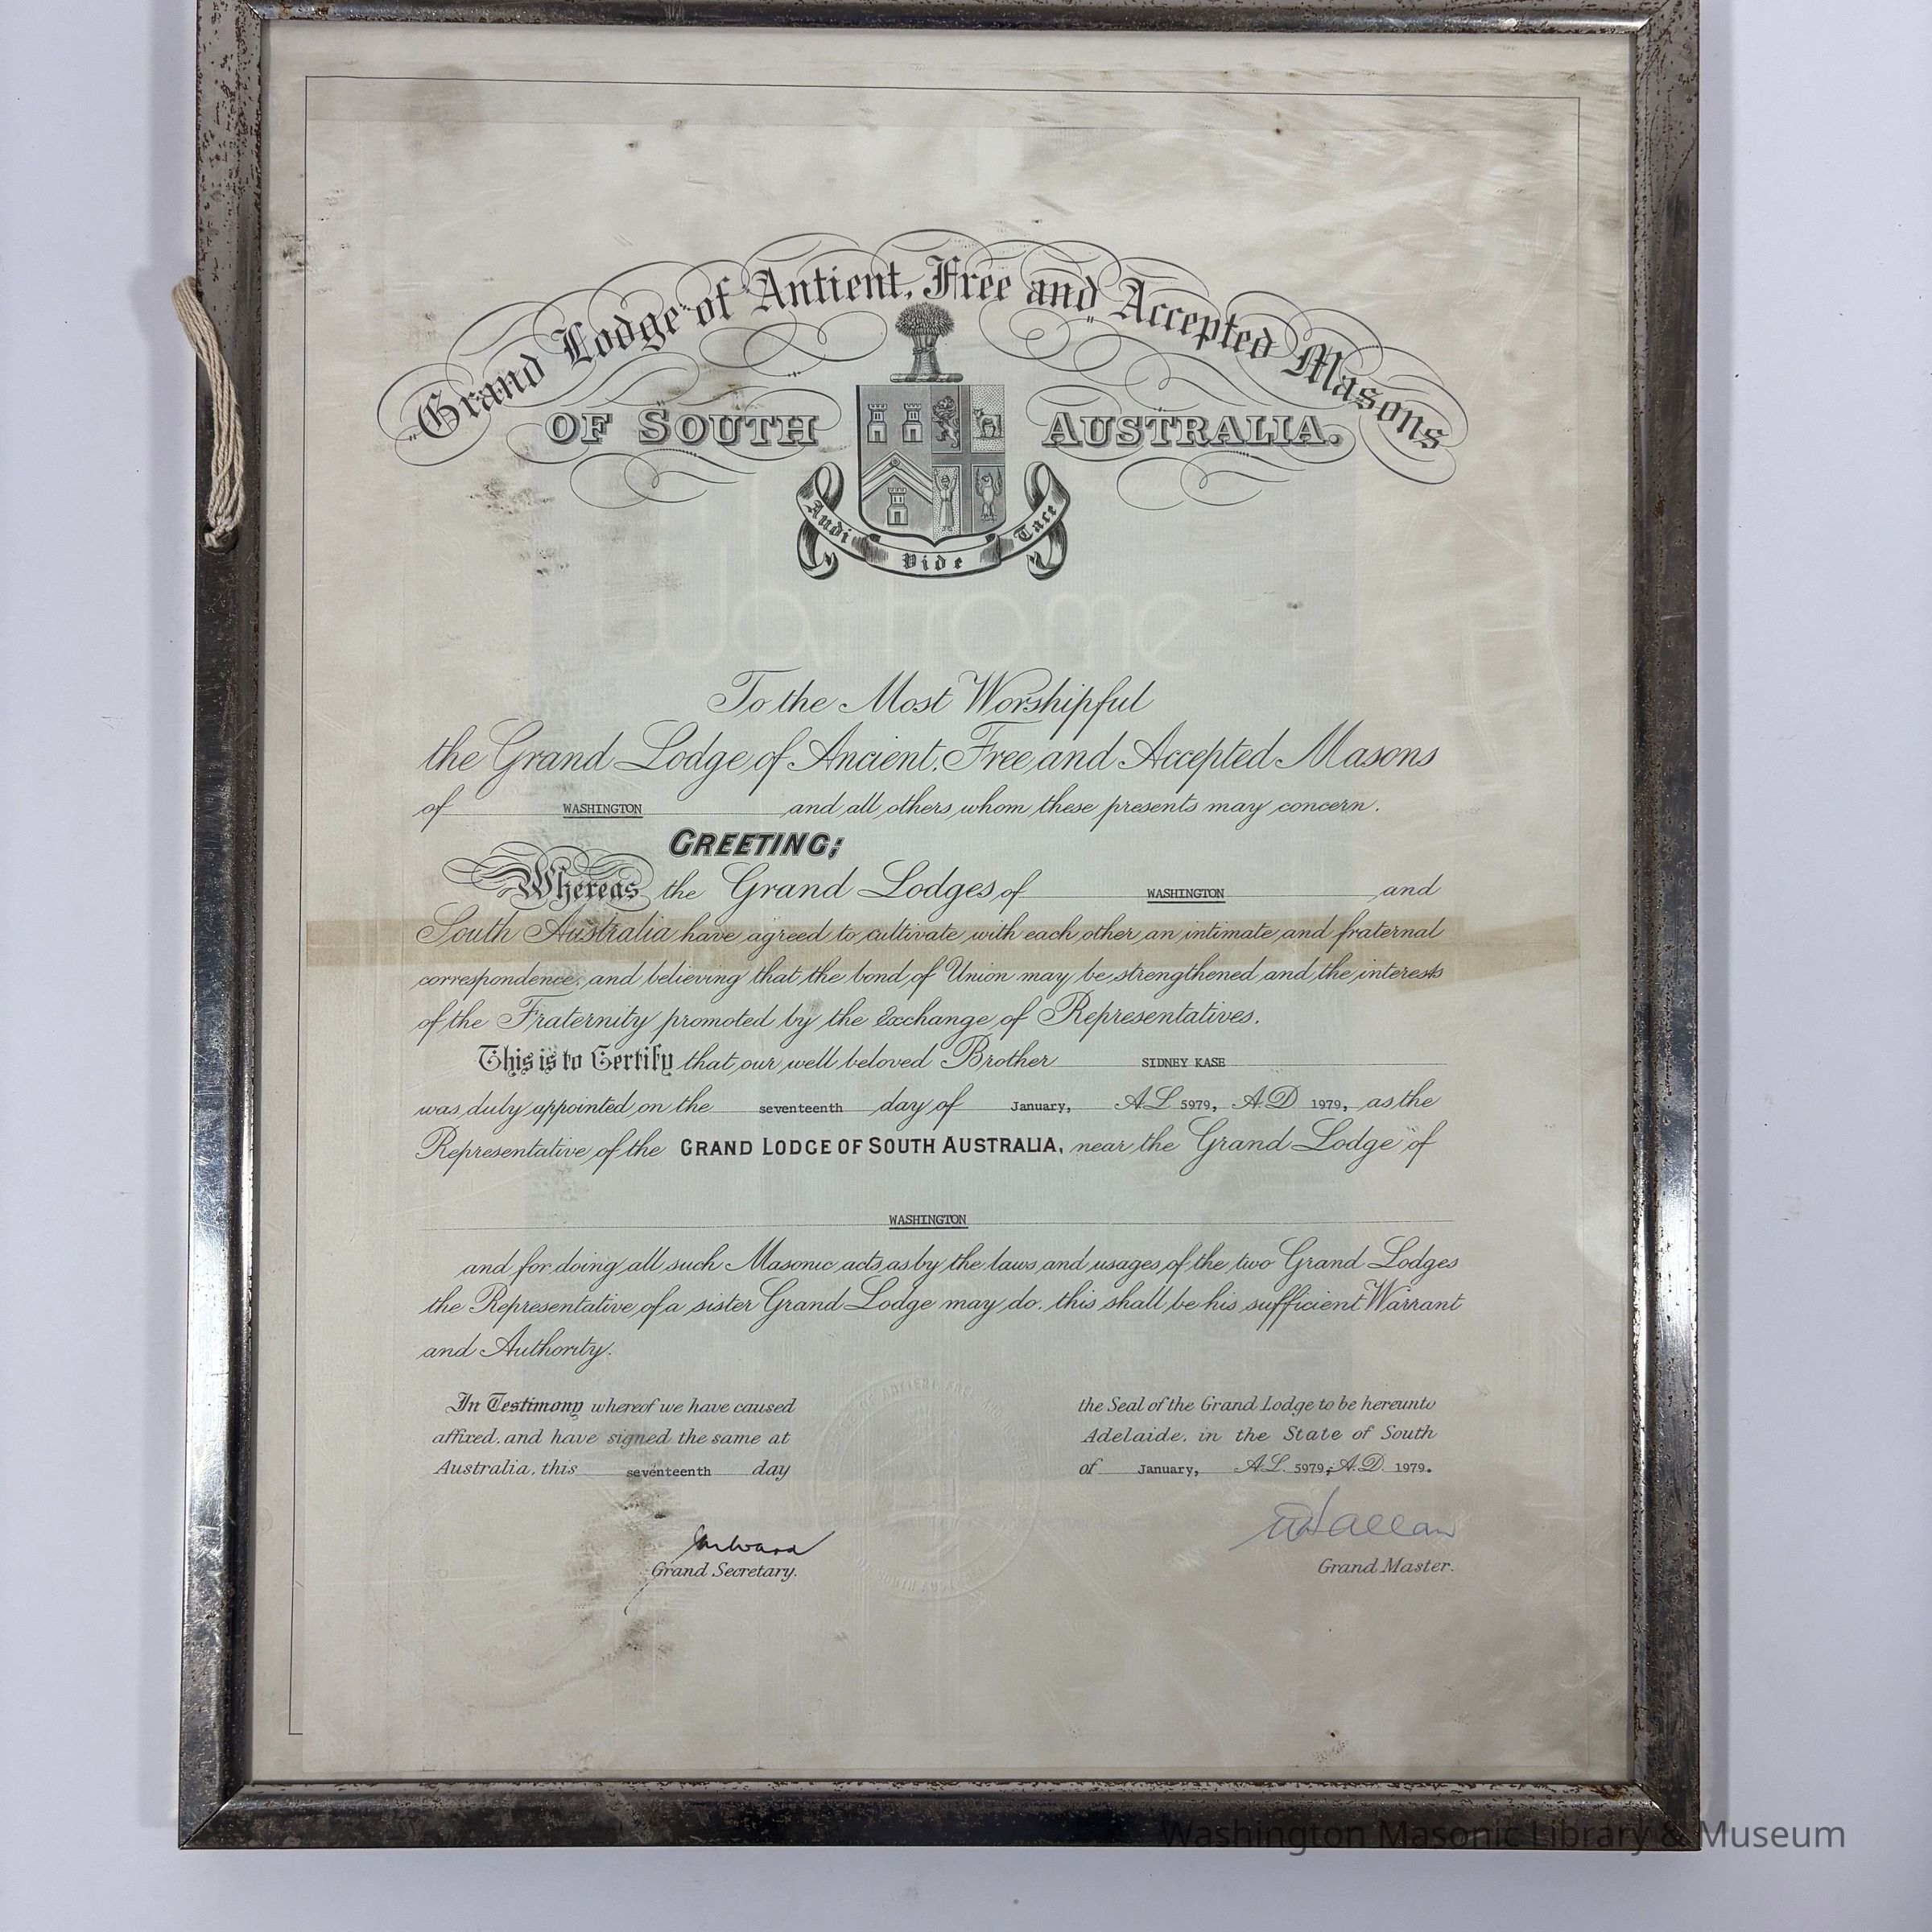 Grand Lodge of Antient, Free and Accepted Masons
OF SOUTH AUSTRALIA.
Audi Vide Tace
To the Most Worshipful
the Grand Lodge of Ancient, Free and Accepted Masons
of WASHINGTON and all others whom these presents may concern.
GREETING;
Whereas the Grand Lodges of WASHINGTON and
South Australia have agreed to cultivate with each other an intimate and fraternal
correspondence, and believing that the bond of Union may be strengthened and the interests
of the Fraternity promoted by the Exchange of Representatives.
This is to Certify that our well beloved Brother SIDNEY KASE
was duly appointed on the seventeenth day of January, A.L 5979, A.D 1979, as the
Representative of the GRAND LODGE OF SOUTH AUSTRALIA, near the Grand Lodge of
WASHINGTON
and for doing all such Masonic acts as by the laws and usages of the two Grand Lodges
the Representative of a sister Grand Lodge may do. this shall be his sufficient Warrant
and Authority.
In Testimony whereof we have caused the Seal of the Grand Lodge to be hereunto
affixed, and have signed the same at Adelaide, in the State of South
Australia, this seventeenth day of January, A.L. 5979; A.D. 1979.
Grand Secretary.
Grand Master.
Washington Masonic Library & Museum